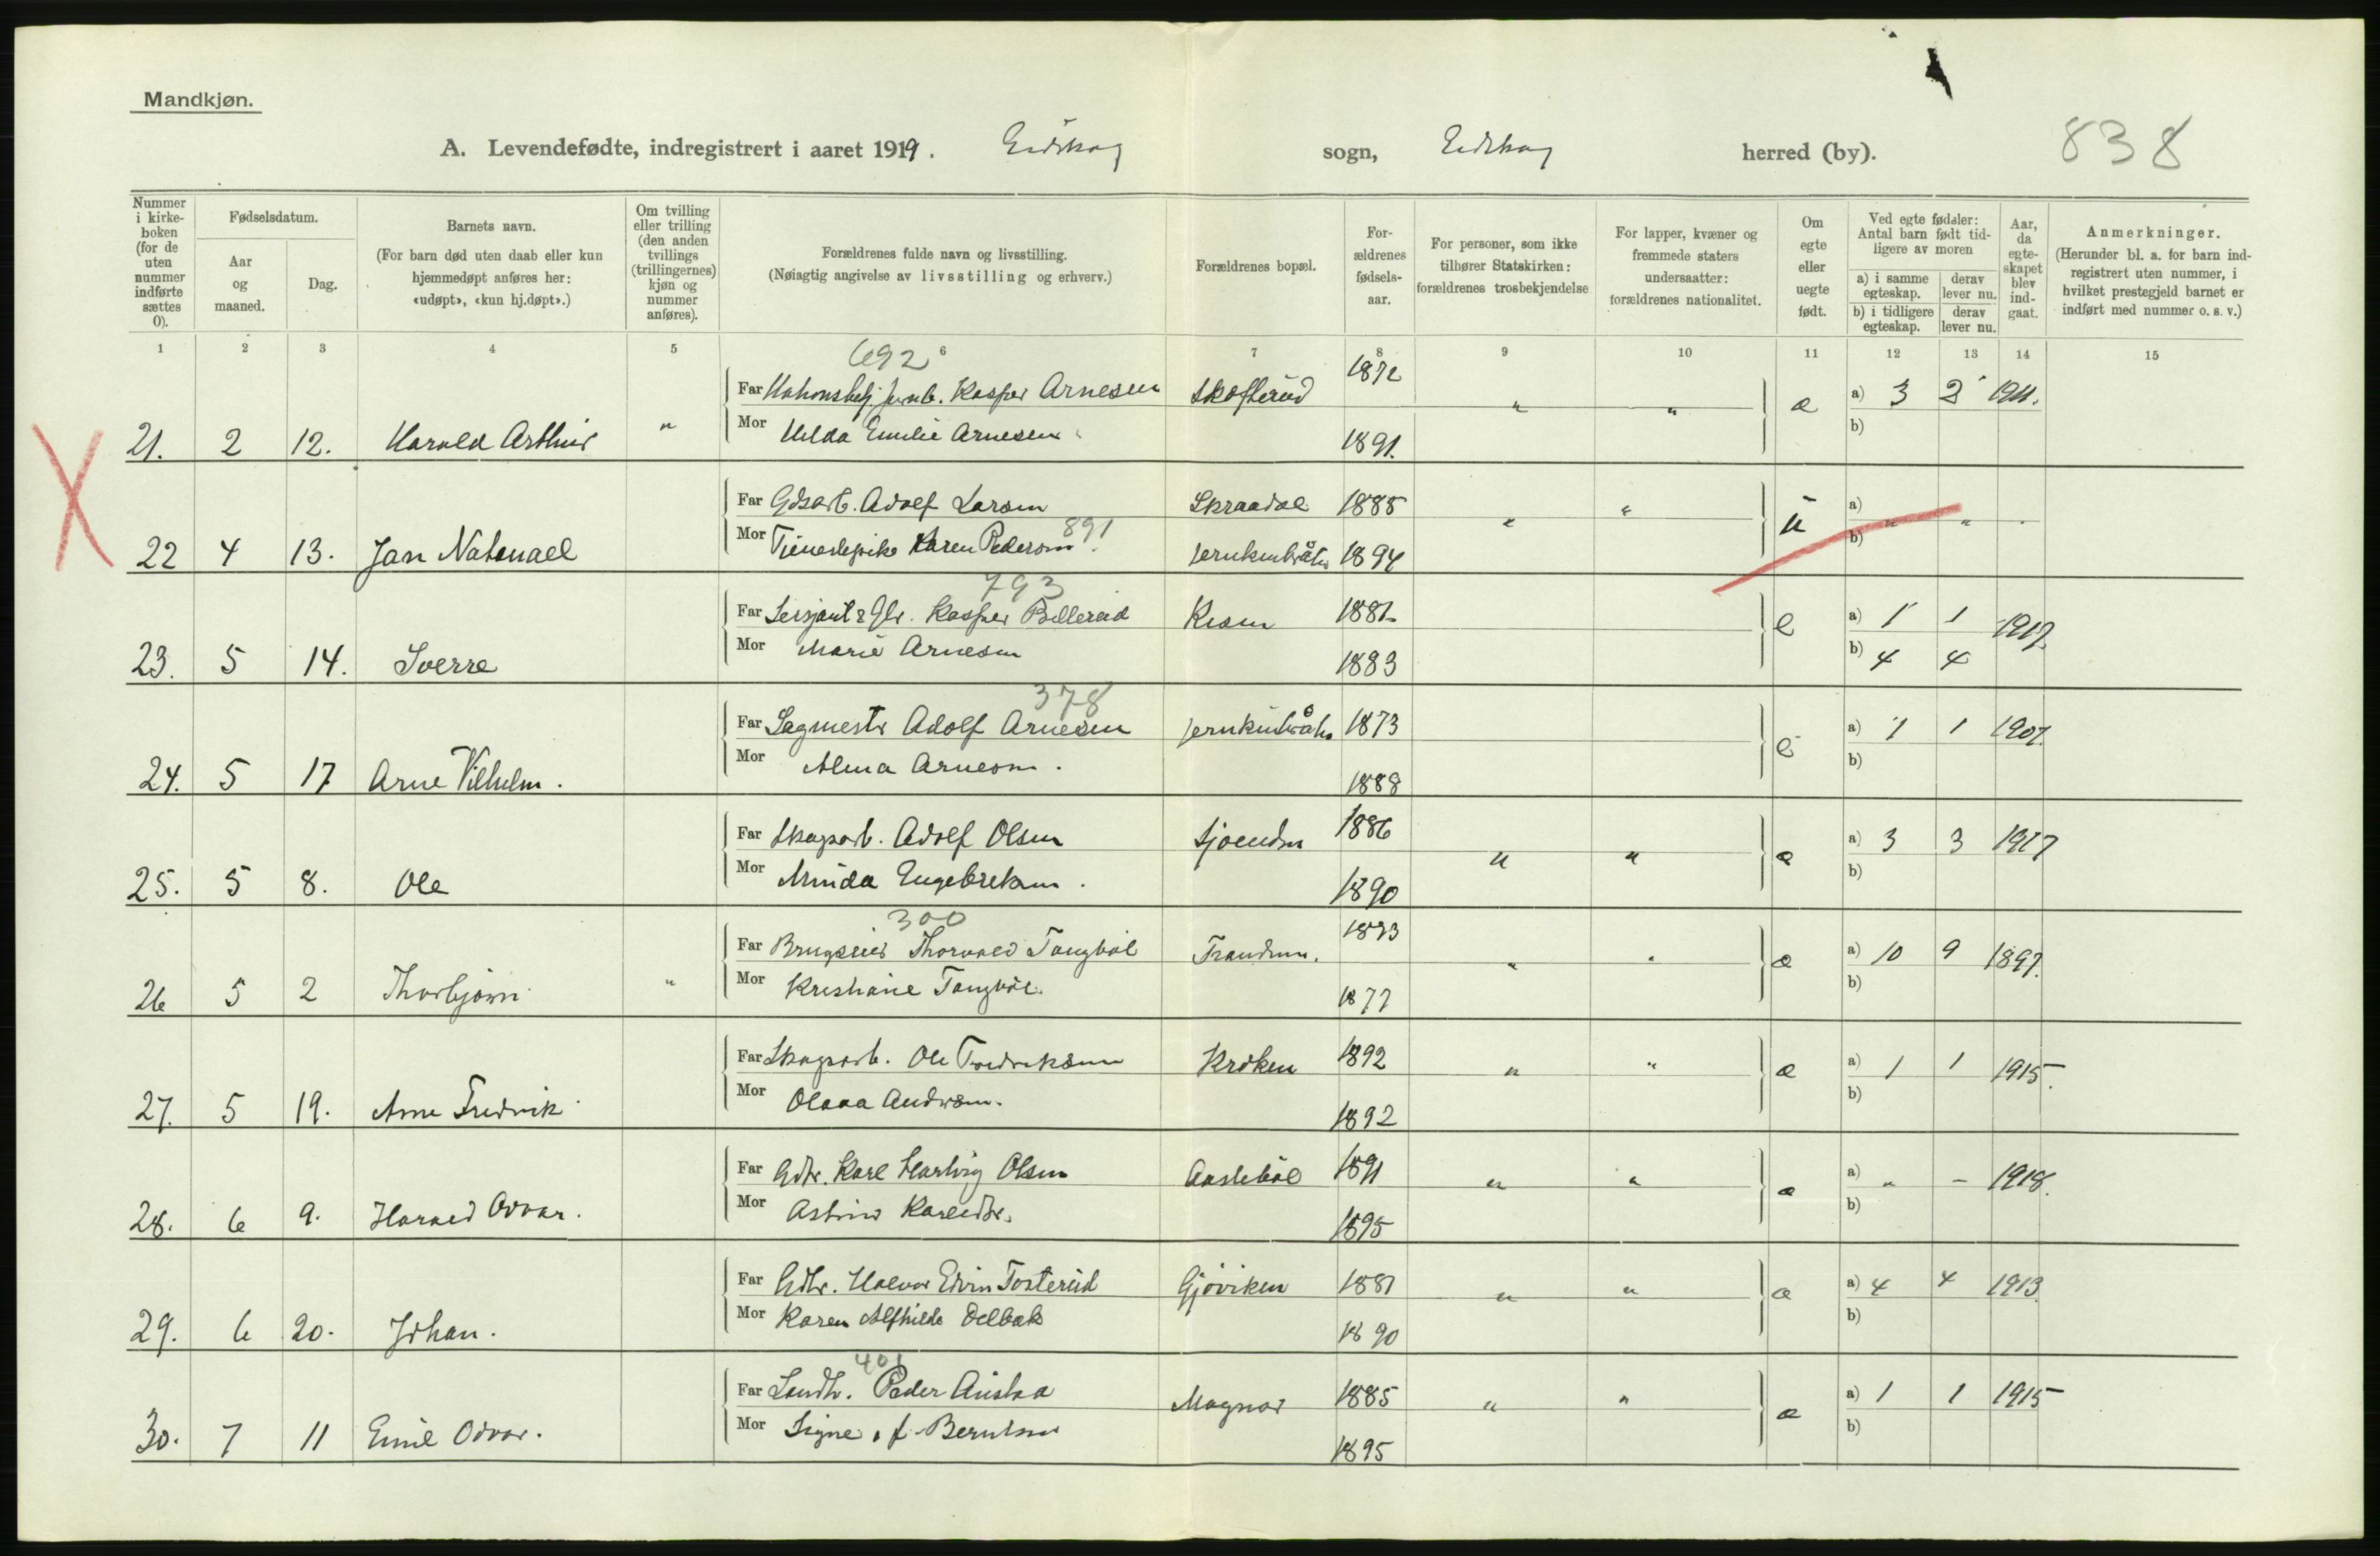 Mandkjøn.
A. Levendefødte, indregistrert i aaret 1919. Eidskog sogn, Eidskog herred (by). 838
Nummer i kirkeboken (for de uten nummer indførte sættes 0).
Fødselsdatum.
Aar og maaned.
Dag.
Barnets navn.
(For barn død uten daab eller kun hjemmedøpt anføres her: «udøpt», «kun hj.døpt».)
Om tvilling eller trilling (den anden tvillings (trillingernes) kjøn og nummer anføres).
Forældrenes fulde navn og livsstilling.
(Nøiagtig angivelse av livsstilling og erhverv.)
Forældrenes bopæl.
Forældrenes fødselsaar.
For personer, som ikke tilhører Statskirken: forældrenes trosbekjendelse
For lapper, kvæner og fremmede staters undersaatter: forældrenes nationalitet.
Om egte eller uegte født.
Ved egte fødsler: Antal barn født tidligere av moren
a) i samme egteskap. derav lever nu.
b) i tidligere egteskap. derav lever nu.
Aar, da egteskapet blev indgaat.
Anmerkninger.
(Herunder bl. a. for barn indregistrert uten nummer, i hvilket prestegjeld barnet er indført med nummer o. s. v.)
1 2 3 4 5 6 7 8 9 10 11 12 13 14 15
692
Far Kasper Arnesen Skofterud 1872 " " e a) 3 2 1911.
21. 2 12. Harald Arthur " Mor Hilda Emilie Arnesen 1891. b)
Far Gdsarb. Adolf Larsen Skraadal 1885 " " u a) " " -
22 4 13. Jan Natanael Mor Tjenestepike Karen Pedersen. 891 1894 b)
793
Far Kasper Bellerud 1881 e a) 1 1 1917.
23. 5 14. Sverre Mor Marie Arnesen 1883 b) 4 4
378
Far Sagmestr Adolf Arnesen 1873 e a) 1 1 1907.
24. 5 17 Arne Vilhelm. Mor Alma Arnesen. 1888 b)
Far Skogsarb. Adolf Olsen 1886 " " e a) 3 3 1917
25. 5 8. Ole Mor Minda Engebretsen. 1890 b)
300
Far Brugseier Thorvald Tangböl Trandum. 1873 " " e a) 10 9 1897.
26 5 2 Thorbjörn " Mor Kristiane Tangböl. 1877 b)
Far Skogsarb. Ole Fredriksen Kroken 1892 " " e a) 1 1 1915.
27. 5 19. Arne Fredrik Mor Olava Andersen. 1892 b)
Far Gdbr. Karl Hartvig Olsen 1891 " " e a) " - 1918.
28. 6 9. Harald Odvar. Mor Astrid 1895 b)
Far Gdbr. Halvor Edvin Tosterud Gjöviken 1881 " " e a) 4 4 1913.
29. 6 20. Johan. Mor Karen Alfhilde 1890 b)
401
Far Landh. Peder Austad Magnor 1885 " " e a) 1 1 1915
30. 7 11 Emil Odvar. Mor Signe f. Berntsen 1895 b)